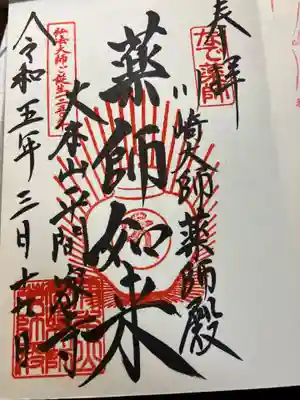 奉拝
なで薬師
川崎大師薬師殿
薬師如来
弘法大師ご誕生一二五〇年
大本山平間寺
令和五年三月十六日